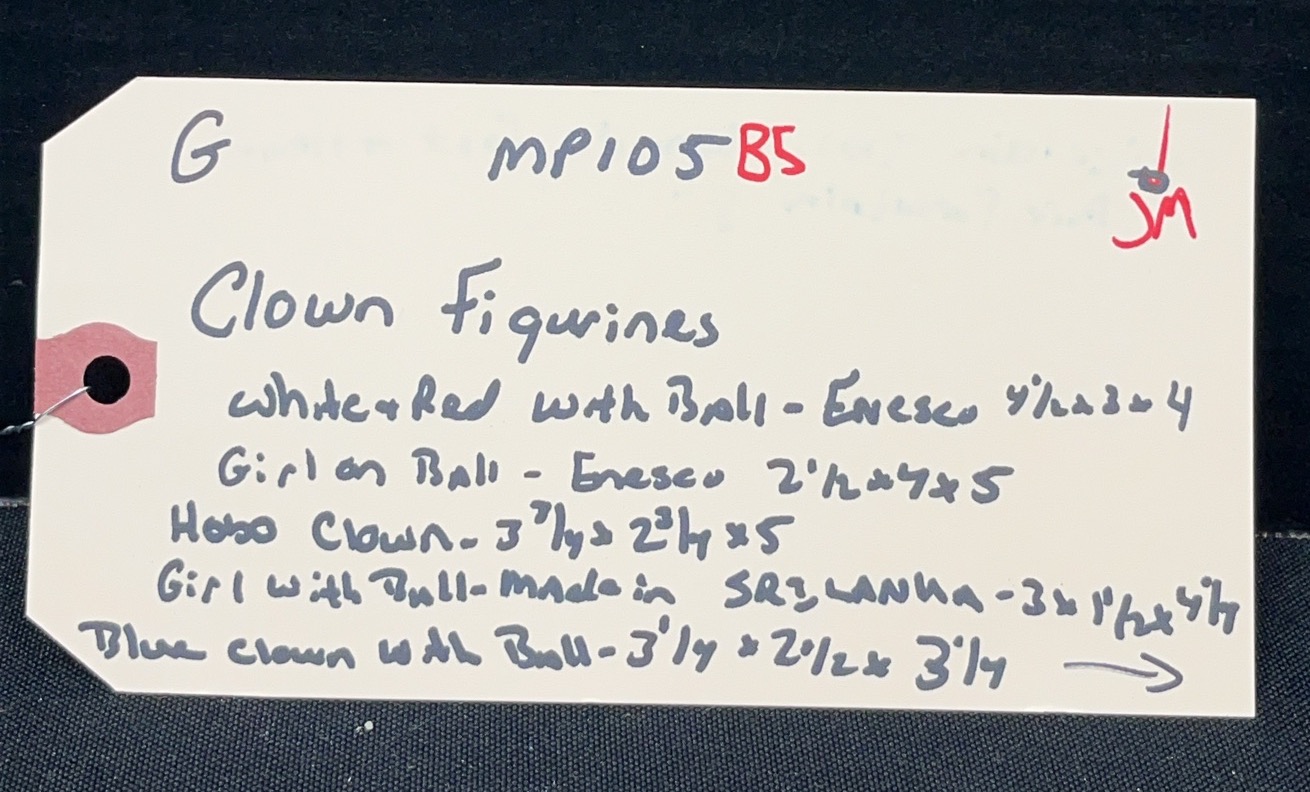 G MP105 B5
JM
Clown Figurines
White & Red with Ball - Enesco 4 1/2 x 3 x 4
Girl on Ball - Enesco 2 1/2 x 4 x 5
Hobo Clown - 3 3/4 x 2 3/4 x 5
Girl with Ball - Made in SRI LANKA - 3 x 1 1/2 x 4 1/4
Blue clown with Ball - 3 1/4 x 2 1/2 x 3 1/4 →